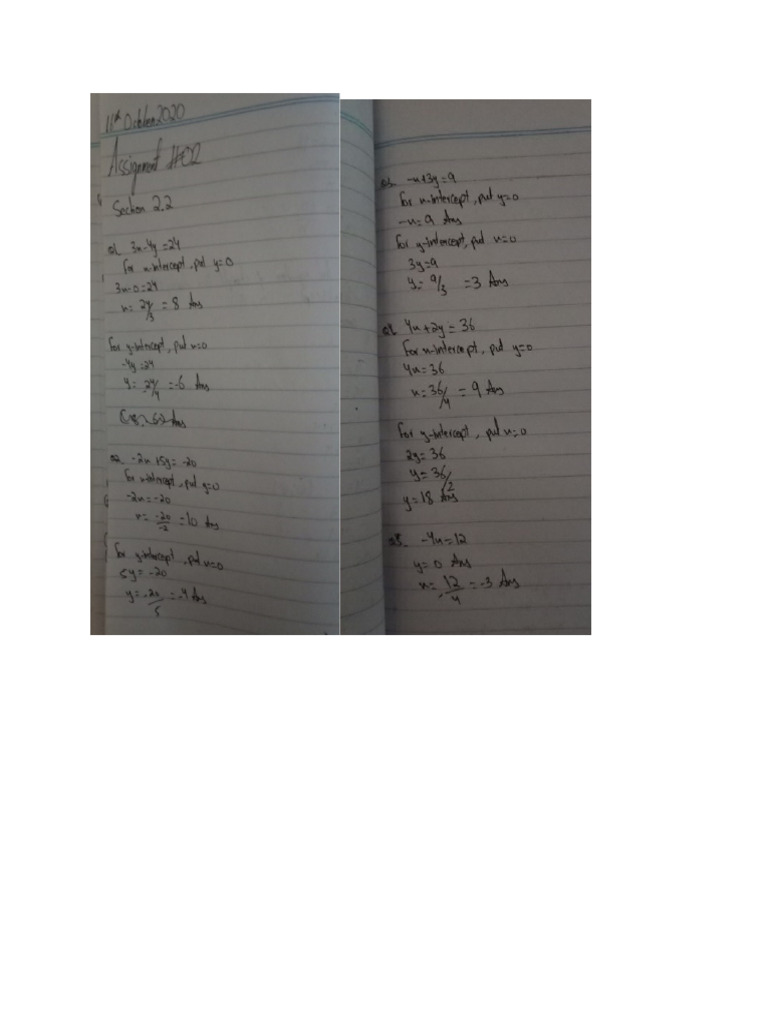 11th October 2020
Assignment #02
Section 2.2
Q1. 3x-4y=24
For x-intercept, put y=0
3x-0=24
x= 24/3 = 8 Ans
For y-intercept, put x=0
-4y=24
y= 24/-4 = -6 Ans
Ans
Q2. -2x+5y=-20
For x-intercept, put y=0
-2x=-20
x= -20/-2 = 10 Ans
For y-intercept, put x=0
5y=-20
y= -20/5 = -4 Ans
Q3. -x+3y=9
For x-intercept, put y=0
-x=9 Ans
For y-intercept, put x=0
3y=9
y= 9/3 = 3 Ans
Q4. 4x+2y=36
For x-intercept, put y=0
4x=36
x= 36/4 = 9 Ans
For y-intercept, put x=0
2y=36
y= 36/2
y=18 Ans
Q5. -4x=12
y=0 Ans
x= 12/-4 = -3 Ans